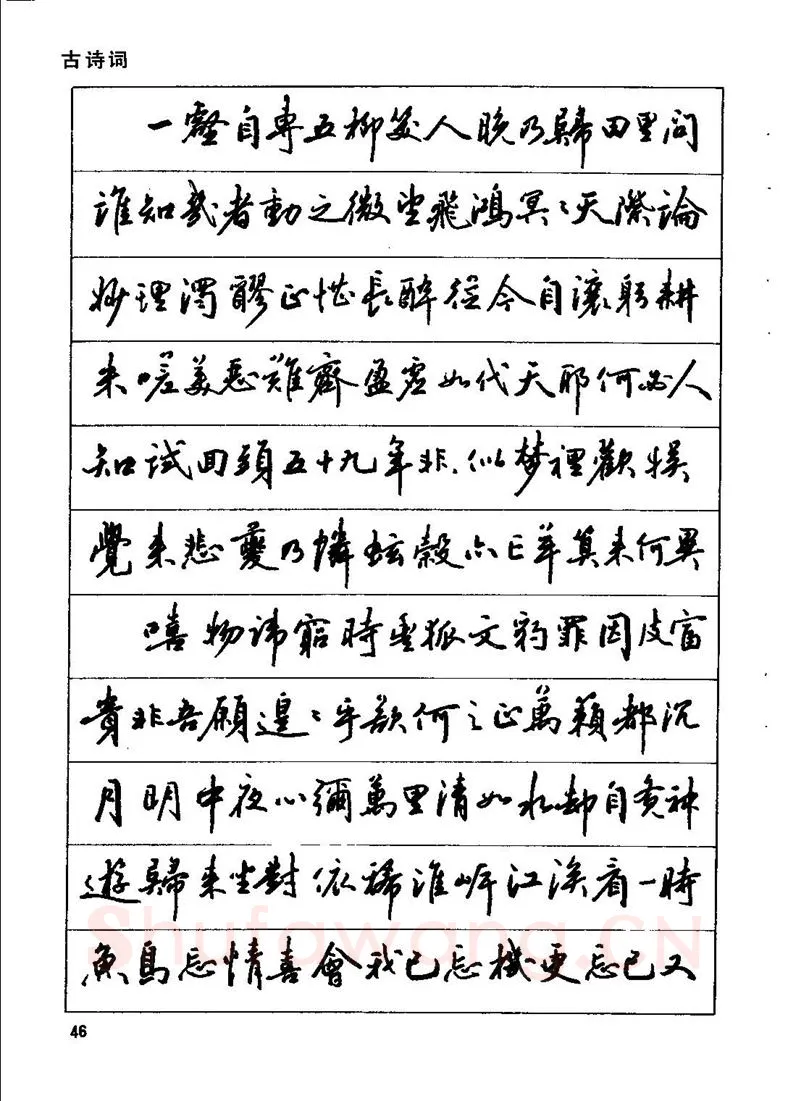 古诗词
一壑自專五柳笑人晚乃歸田里問
誰知幾者動之微望飛鴻冥冥天際論
妙理濁醪正堪長醉從今自釀躬耕
米嗟美惡難齊盈虛如代天耶何必人
知試回頭五十九年非似梦裡歡娱
覺來悲夔乃憐蚿穀亦亡羊算來何異
嘻物諱窮時豐狐文豹罪因皮富
貴非吾願遑遑乎欲何之正萬籟都沉
月明中夜心彌萬里清如水却自神
遊歸來坐對依稀淮岸江涘看一時
魚鳥忘情喜會我已忘機更忘己又
Shufawang.CN
46